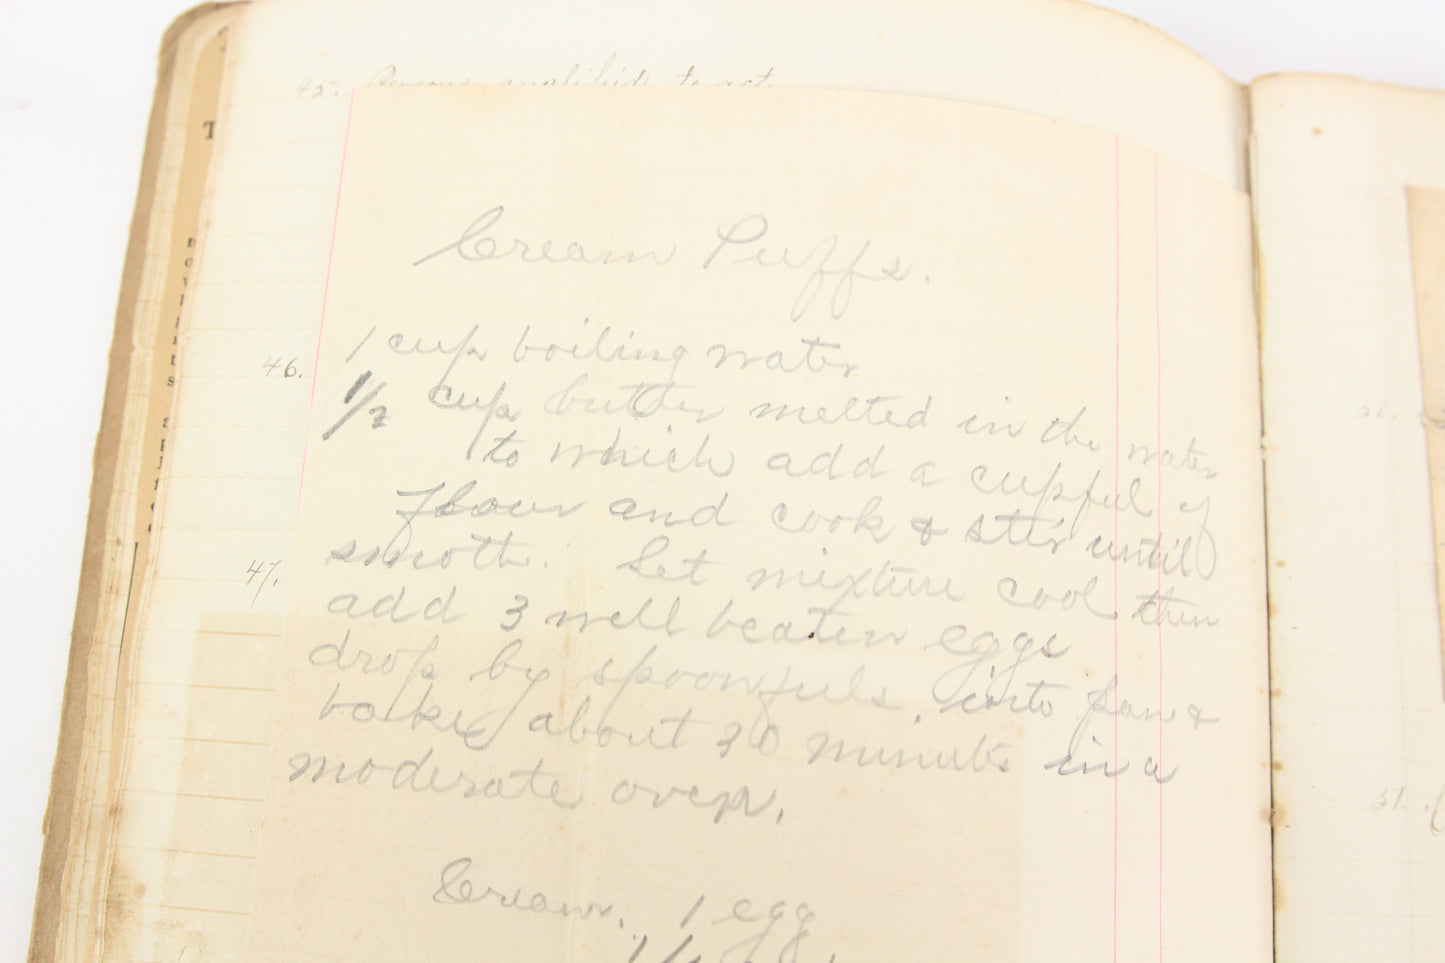 45.
to act
Cream Puffs.
1 cup boiling water
46.
1/2 cup butter melted in the water
to which add a cupful of
flour and cook & stir until
smoth. Let mixture cool then
47.
add 3 well beaten eggs
drop by spoonfuls, into pan &
bake about 30 minutes in a
moderate oven.
Cream. 1 egg
37.